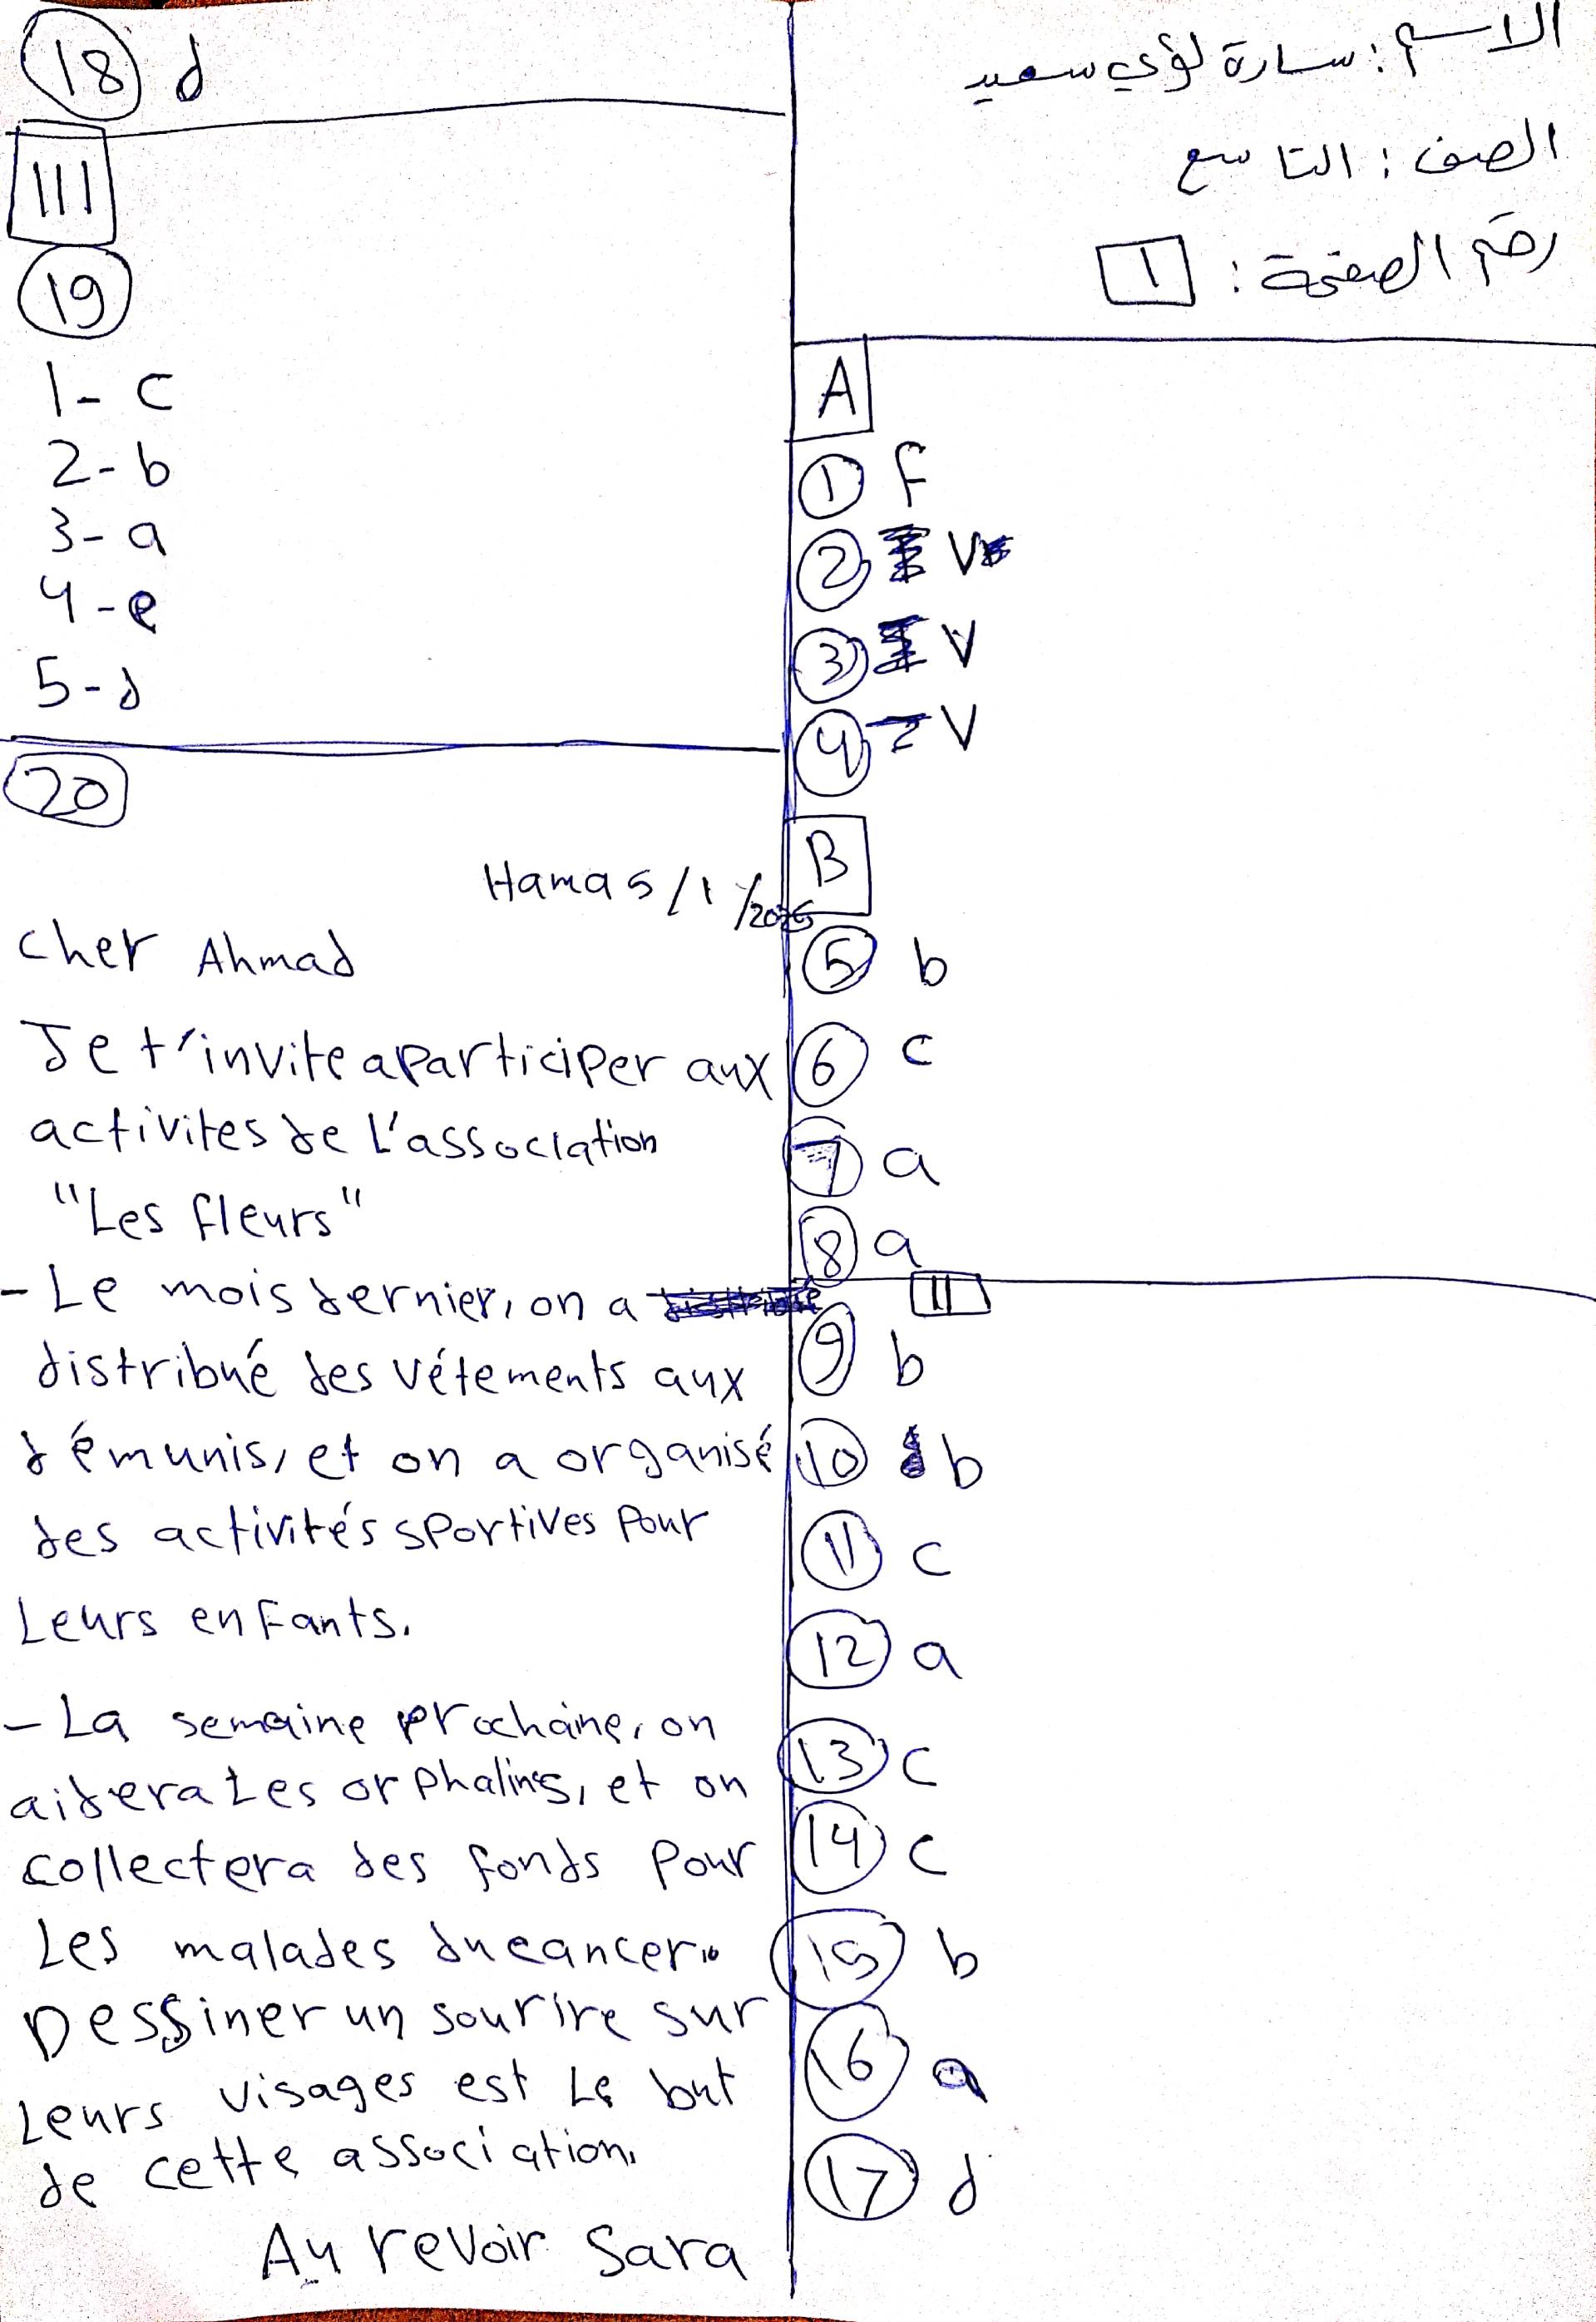 الاسم : سارة لؤي سعيد
الصف : التاسع
رقم الصفحة : 1
A
1 F
2 V
3 V
4 V
B
5 b
6 c
7 a
8 a
II
9 b
10 b
11 c
12 a
13 c
14 c
15 b
16 a
17 d
18 d
III
19
1- c
2- b
3- a
4- e
5- d
20
Hama 5/1/2026
cher Ahmad
Je t'invite a participer aux
activites de L'association
"Les fleurs"
- Le mois dernier, on a
distribué des vétements aux
démunis, et on a organisé
des activités sportives Pour
Leurs enfants.
- La semaine prochaine, on
aidera Les orphalins, et on
collectera des fonds pour
Les malades du cancer.
Dessiner un sourire sur
Leurs visages est Le but
de cette association.
Au revoir Sara